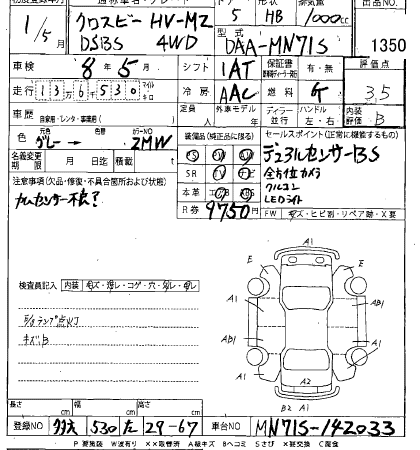 ドア 形状 排気量 出品NO
1/5 クロスビー HV-MZ 5 HB 1000cc
DSBS 4WD 型式 DAA-MN71S 1350
車検 8年5月 シフト 1AT 保証書 有・無 評価点
走行 136530 マイル km 冷房 AAC 燃料 3.5
車歴 自家用・レンタ・事業用( ) 定員 人 外車モデル ディーラー 並行 ハンドル 左・右 内装評価 B
色 元色 グレー → 色替 カラーNO ZMW 装備品(純正品に限る) セールスポイント(正常に機能するもの)
名義変更期限 月 日迄 積載 t PS AW PW デュアルセンサーBS
注意事項(欠品・修復・不具合箇所および状態) SR TV 全方位カメラ
カメセンサー不良? 本革 エアB ABS クルコン
R券 9750 LEDライト
FW キズ・ヒビ割・リペア跡・X要
A1
E E
検査員記入 内装 キズ・汚レ・コゲ・穴
A1 AB1
ランプ点灯
キズB AB1 A1
A1 A2 A1
長さ cm 幅 cm 高さ cm B2 A1
登録NO 530 た 29-67 車台NO MN71S-142033
P 要塗装 W波有り XX取替済 A線キズ Bヘコミ Sさび X要交換 C腐食